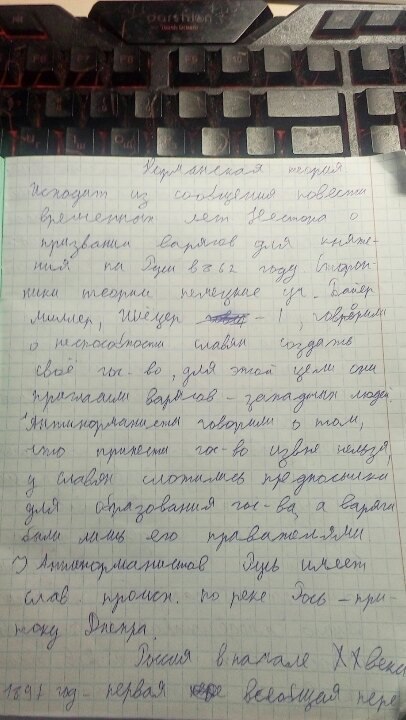 Darshion
Норманская теория
Исходит из сообщения повести
временных лет Нестора о
призвании варягов для княже-
ния на Руси в 862 году. Сторон-
ники теории немецкие уч. Байер
Миллер, Шлёцер - 1, говорили
о неспособности славян создать
своё гос-во, для этой цели они
пригласили варягов - западных людей.
Антинорманисты говорили о том,
что принести гос-во извне нельзя,
у славян сложились предпосылки
для образования гос-ва, а варяги
были лишь его правителями
Антинорманистов Русь имеет
слав. происх. по реке Рось - при-
току Днепра.
Россия в начале XX века
1897 год - первая всеобщая пере